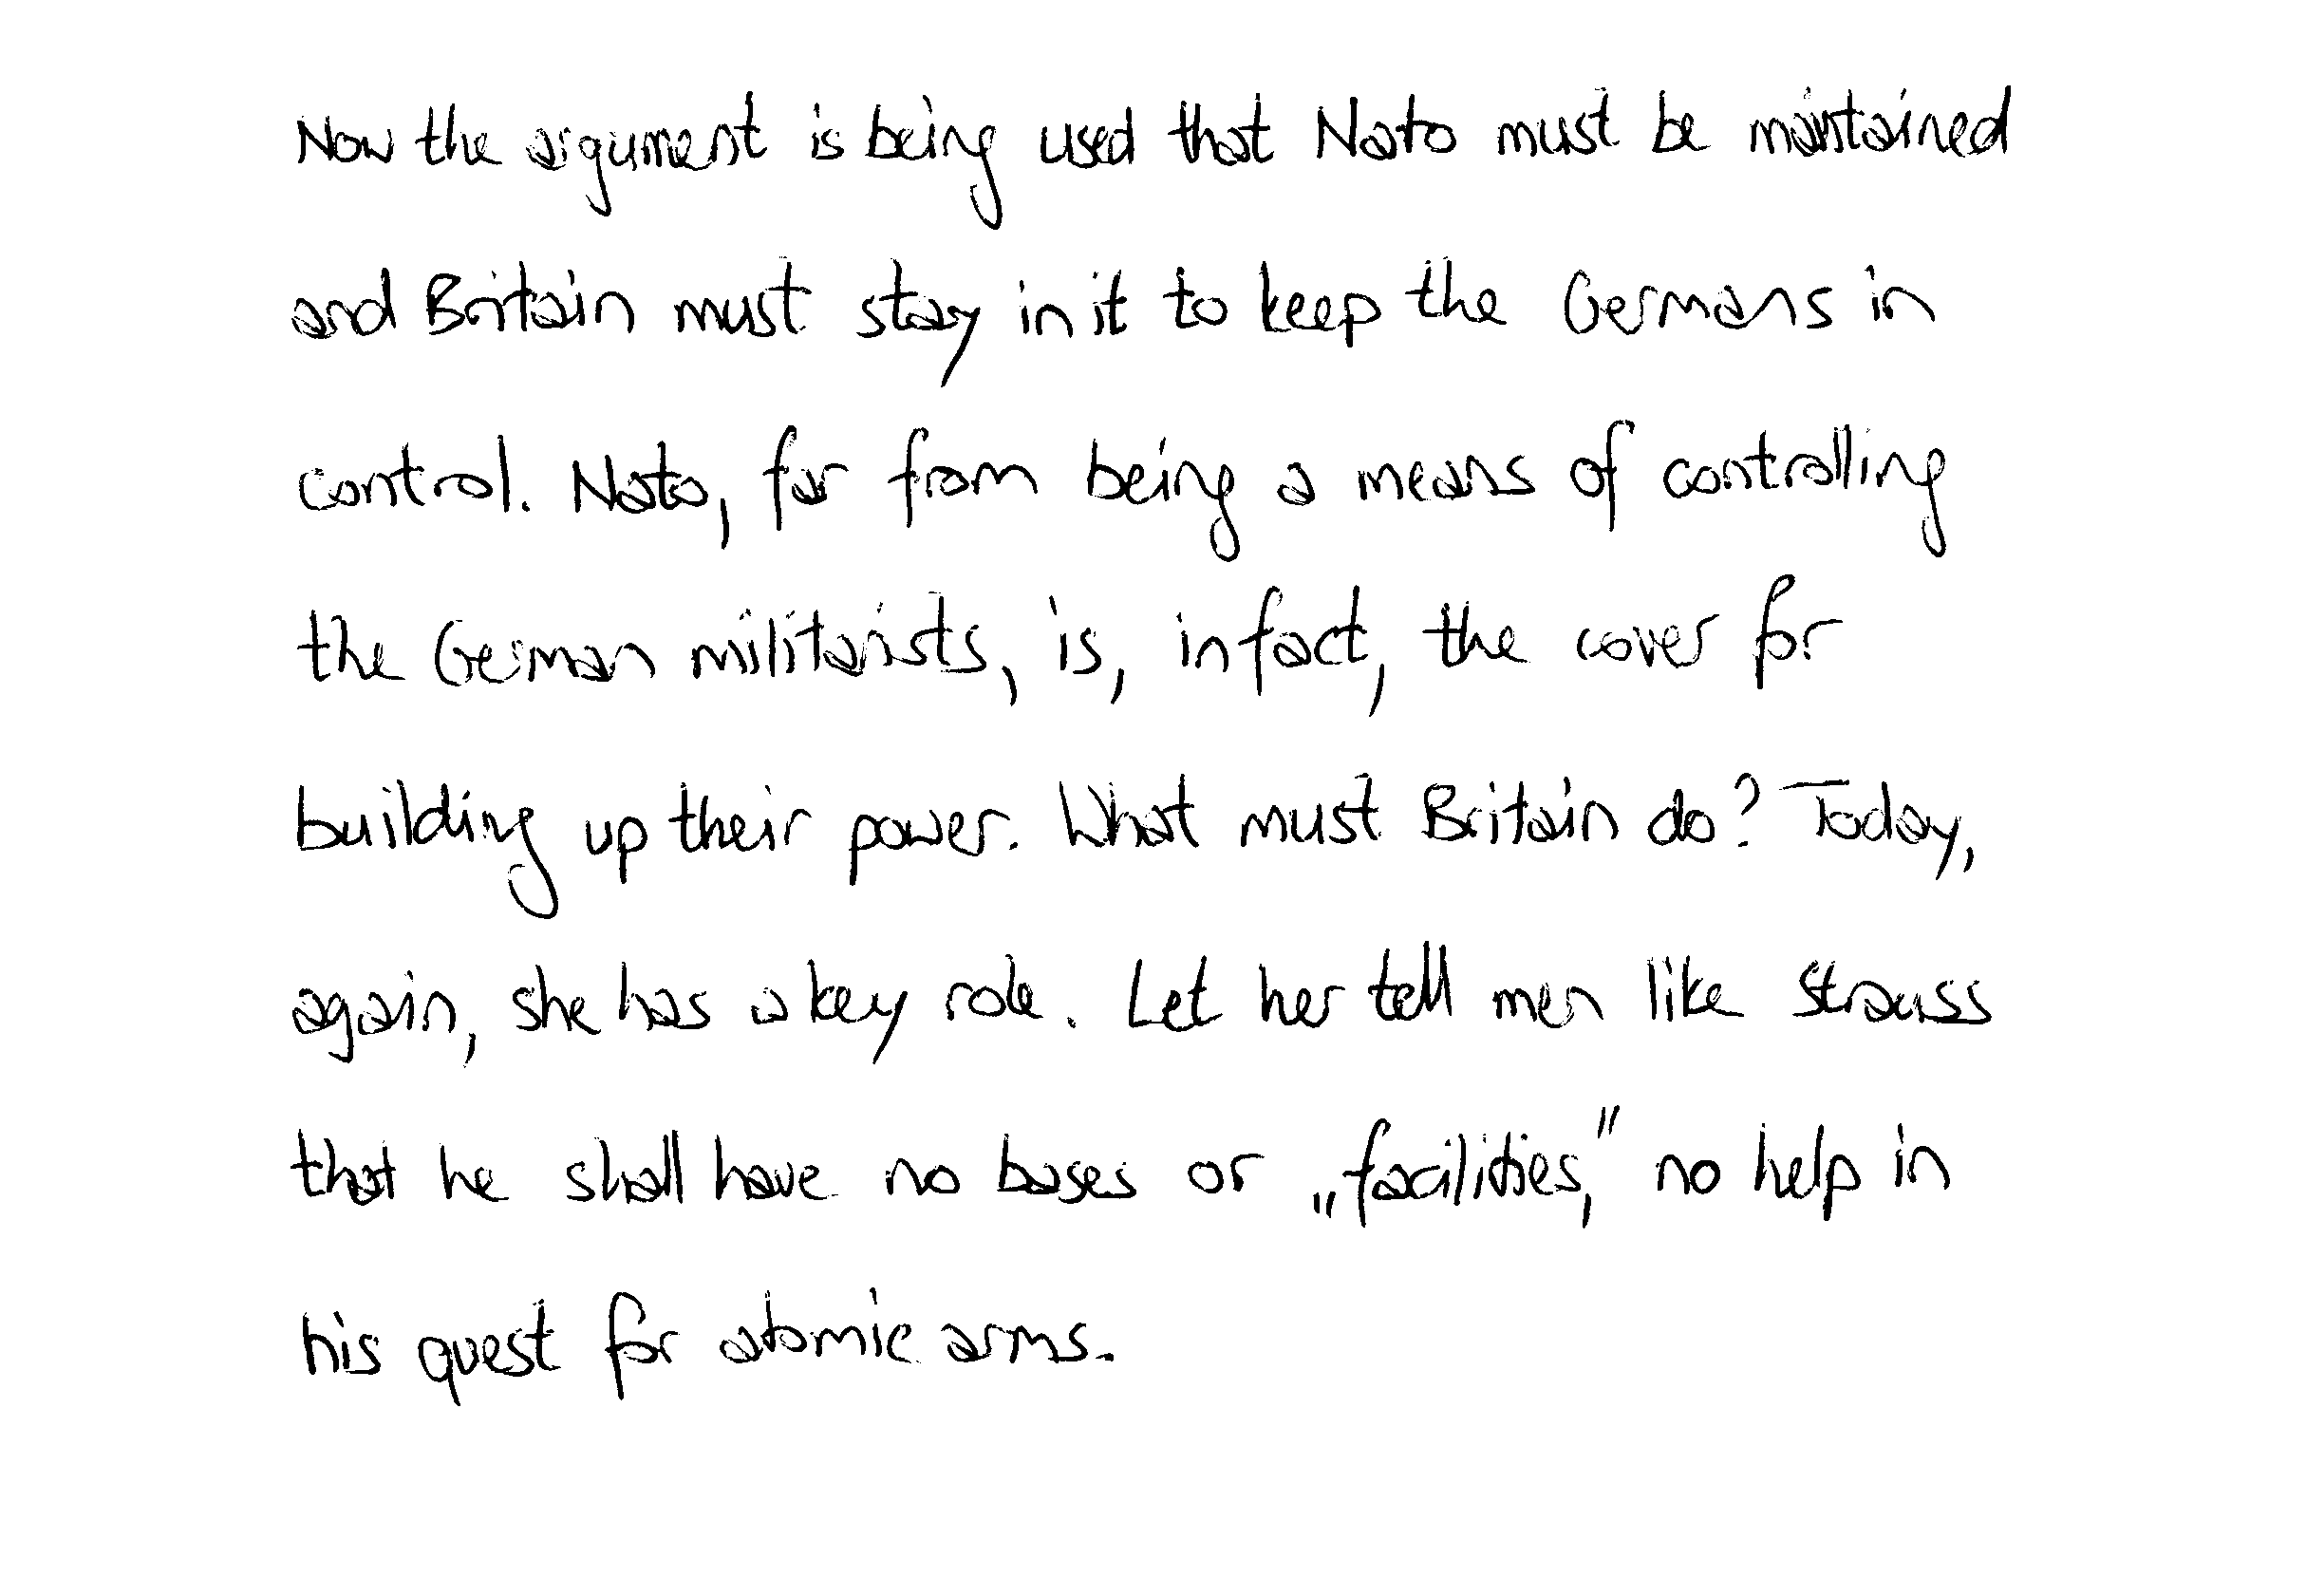 Now the argument is being used that Nato must be maintained
and Britain must stay in it to keep the Germans in
control. Nato, far from being a means of controlling
the German militarists, is, in fact, the cover for
building up their power. What must Britain do? Today,
again, she has a key role. Let her tell men like Strauss
that he shall have no bases or „facilities," no help in
his quest for atomic arms.